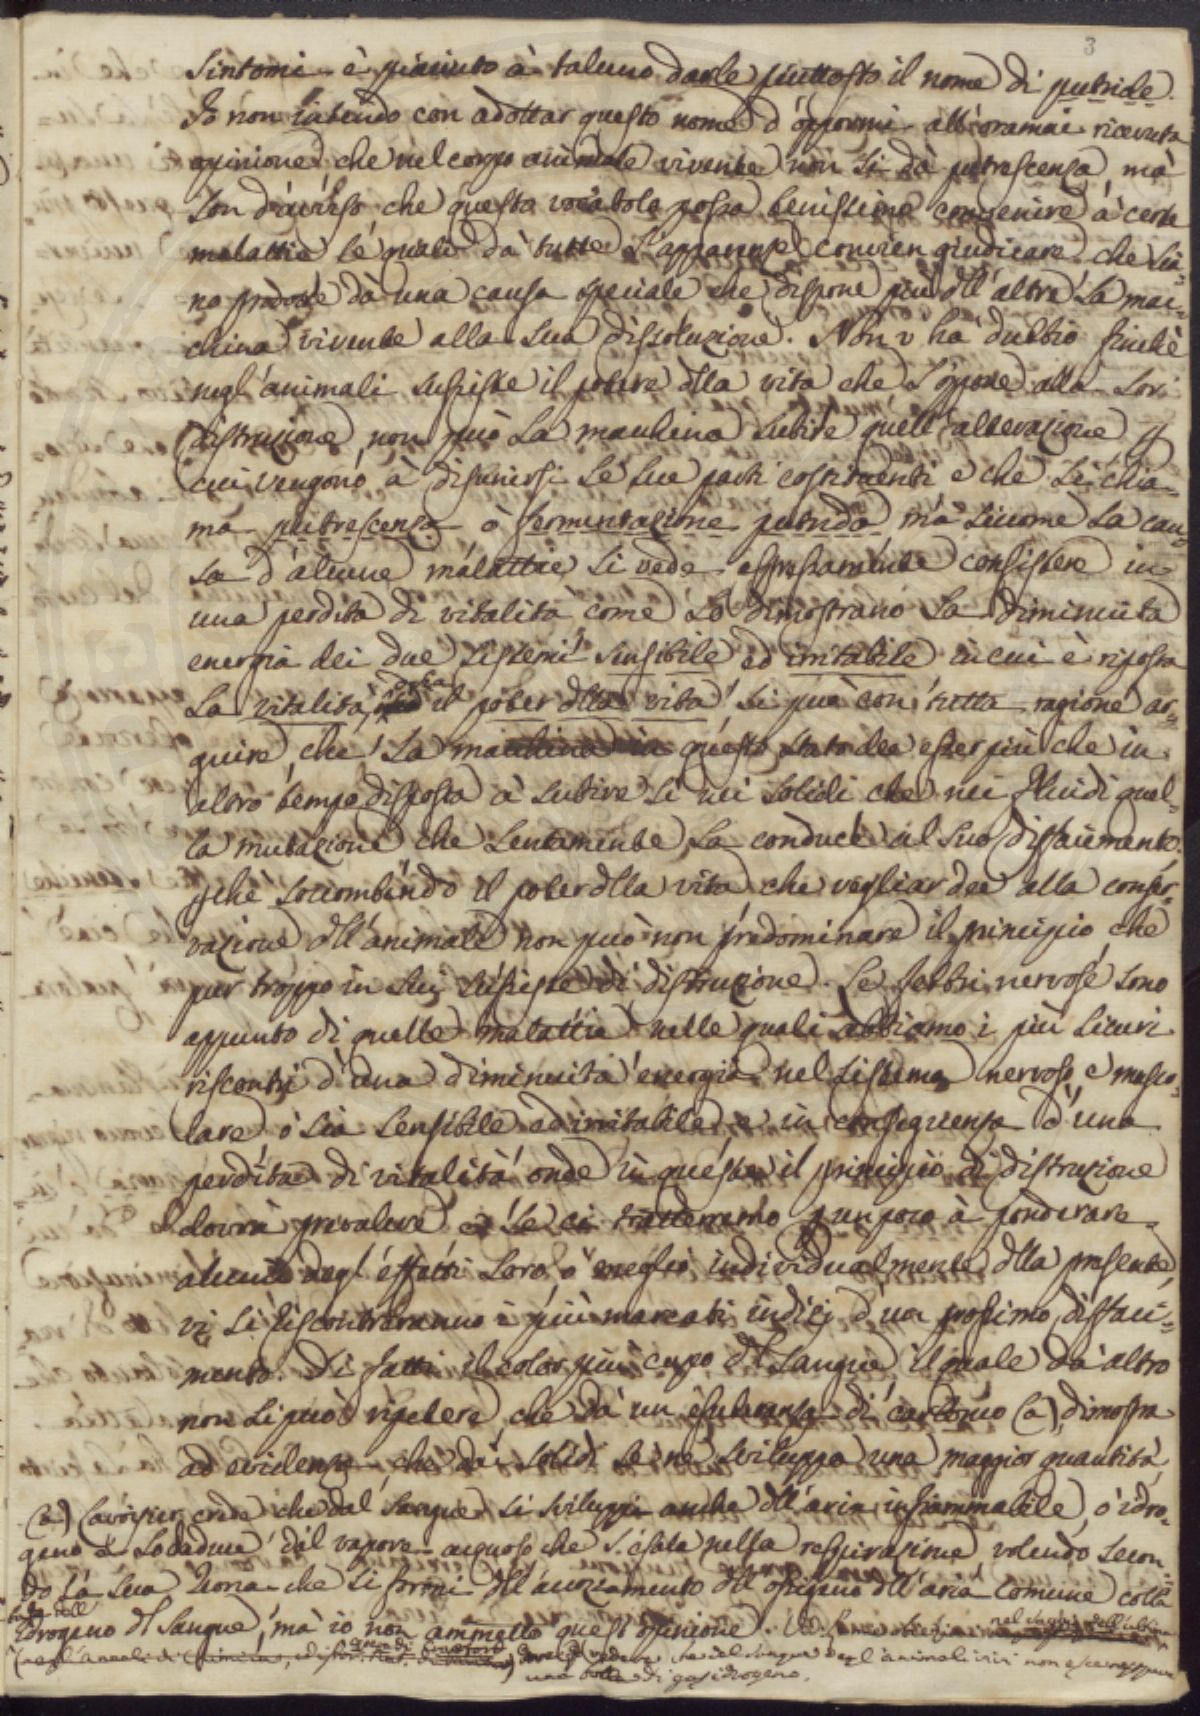 3
Sintomi è piaciuto à taluno darle piuttosto il nome di putride.
Io non intendo con adottar questo nome d'oppormi all'oramai ricevuta
opinione che nel corpo animale vivente non si dà putrescenza, mà
son d'avviso che questo vocabolo possa benissimo convenire à certe
malattie le quali dà tutte l'apparenze convien giudicare che sia-
no prodotte dà una causa speciale che dispone più dll'altre la mac-
china vivente alla sua dissoluzione. Non v'hà dubbio finchè
negl'animali sussiste il potere dlla vita che s'oppone alla lor
distruzione, non può la macchina subire quell'alterazione p
cui vengono à disunirsi le sue parti costituenti e che si chia-
ma putrescenza ò fermentazione putrida mà siccome la cau-
sa d'alcune malattie si vede espressamente consistere in
una perdita di vitalità come lo dimostrano la diminuita
energia dei due sistemi sensibile ed irritabile in cui è riposta
la vitalità, ossia il poter dlla vita, si può con tutta ragione ar-
guire, che la macchina in questo stato dee esser più che in
altro tempo disposta à subire sì nei solidi che nei fluidi quel-
la mutazione che lentamente la conduce al suo disfacimento.
pche soccombendo il poter dlla vita che vegliar dee alla conser-
vazione dll'animale non può non predominare il principio che
pur troppo in lui sussiste di distruzione. Le febbri nervose sono
appunto di quelle malattie nelle quali abbiamo i più sicuri
riscontri d'una diminuita energia nel sistema nervoso e musco-
lare ò sia sensibile ed irritabile e in conseguenza d'una
perdita di vitalità onde in queste il principio di distruzione
dovrà prevalere e se ci tratterremo p un poco à ponderare
alcuni degl'effetti loro ò meglio individualmente dlla presente
vi si riscontreranno i più marcati indizj d'un prossimo disfaci-
mento. Di fatti il color più cupo dl sangue il quale dà altro
non si può ripetere, che dà un esuberanza di carbonio (a), dimostra
ad evidenza che dai solidi se ne sviluppa una maggior quantità
(a) Lavoisier crede che dal sangue si sviluppi anche dll'aria infiammabile, ò idro-
geno e lo deduce dal vapore acquoso che s'esala nella respirazione volendo secon-
do la sua teoria che si formi dll'accozzamento dll'ossigeno dll'aria comune colla
idrogeno dl sangue, mà io non ammetto quest'opinione.
nel sangue dell'ultima
(negl'Annali di Chimica, che dal sangue degl'animali vivi non esce neppure
una bolla di gas idrogeno.